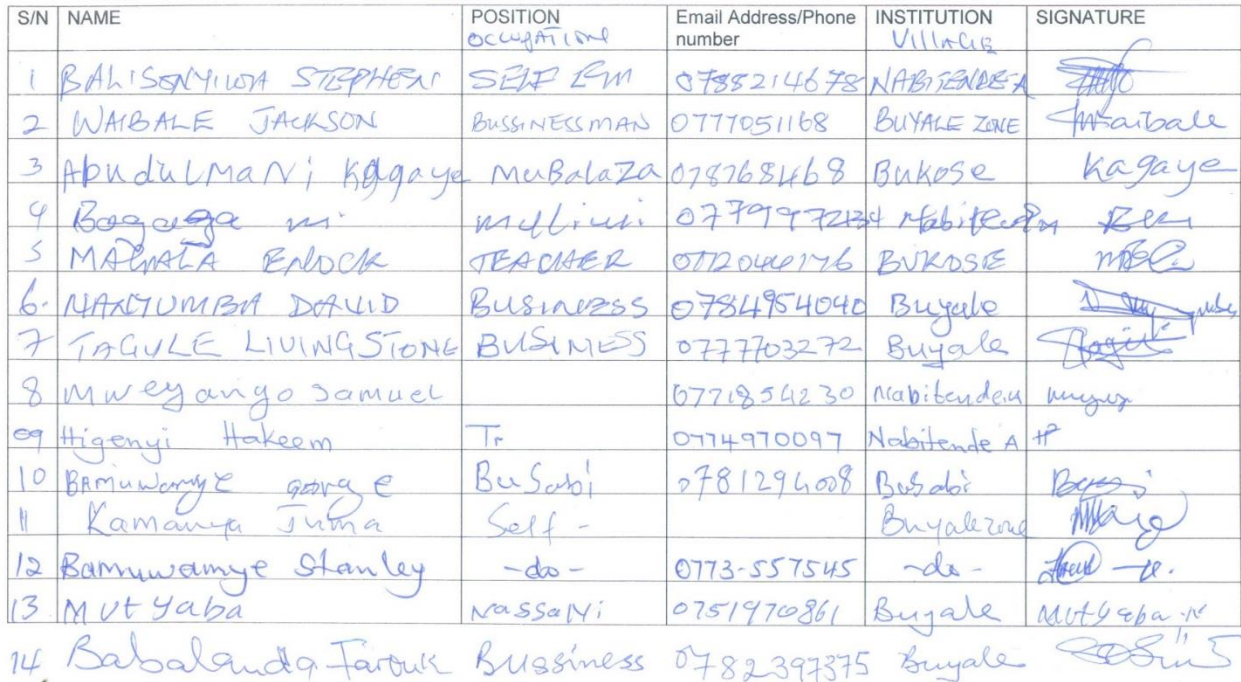 S/N NAME POSITION Email Address/Phone INSTITUTION SIGNATURE
OCCUPATION number VILLAGE
1 BALISONYIWA STEPHEN SELF EM 0788214678 NABITENDE A
2 WAIBALE JACKSON BUSSINESSMAN 0777051168 BUYALE ZONE Waibale
3 Abudulmani Kagaye Mubalaza 0787684468 Bukose Kagaye
4
5 ENOCK TEACHER BUKOSE
6. NANYUMBA DAVID BUSINESS 0784954040 Buyale
7 TAGULE LIVINGSTONE BUSINESS 0777703272 Buyale
8 Mweyango Samuel 0771854230
09 Higenyi Hakeem Tr 0774970097 Nabitende A
10 Bamuwamye George Busabi 0781294008 Busabi
11 Kamanya Juma Self - Buyale zone
12 Bamuwamye Stanley -do- 0773-557545 -do-
13 Mutyaba Nassani 0751970861 Buyale Mutyaba
14 Babalanda Farouk Bussiness 0782397375 Buyale